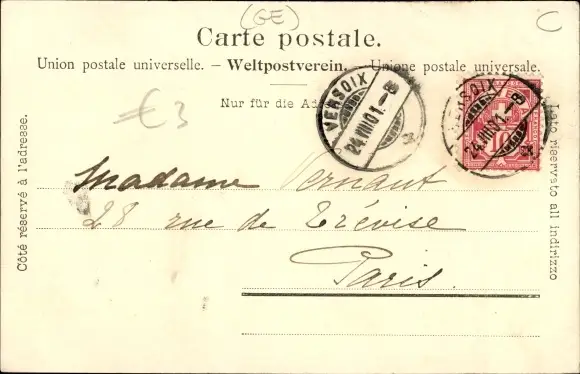 (GE)
C
Carte postale.
Union postale universelle. – Weltpostverein. – Unione postale universale.
€ 3
Nur für die
VERSOIX
24.VIII.01.-8
VERSOIX
24.VIII.01.-8
10
Côté réservé à l'adresse.
Lato riservato all indirizzo
Madame Vernant
28 rue de Trévise
Paris.